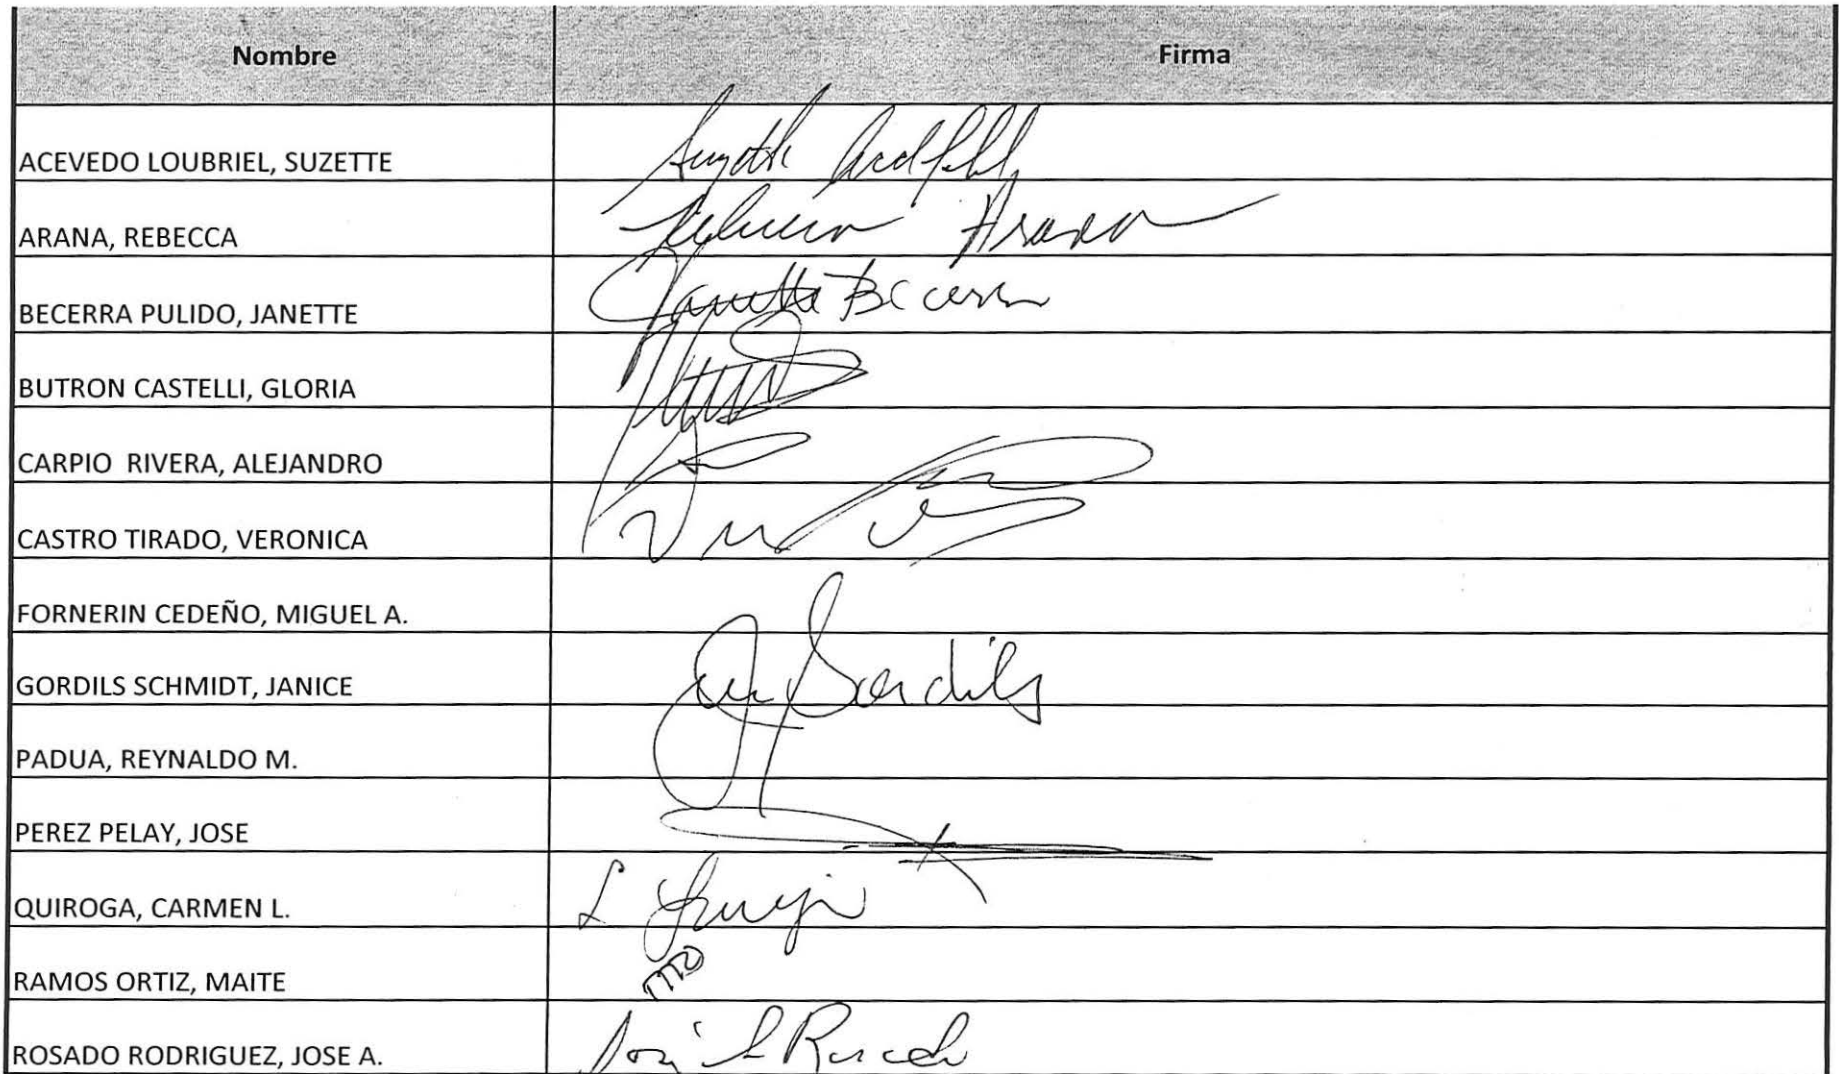 Nombre Firma
ACEVEDO LOUBRIEL, SUZETTE
ARANA, REBECCA Rebecca Arana
BECERRA PULIDO, JANETTE Janette Becerra
BUTRON CASTELLI, GLORIA
CARPIO RIVERA, ALEJANDRO
CASTRO TIRADO, VERONICA
FORNERIN CEDEÑO, MIGUEL A.
GORDILS SCHMIDT, JANICE Gordils
PADUA, REYNALDO M.
PEREZ PELAY, JOSE
QUIROGA, CARMEN L.
RAMOS ORTIZ, MAITE
ROSADO RODRIGUEZ, JOSE A. José A Rosado